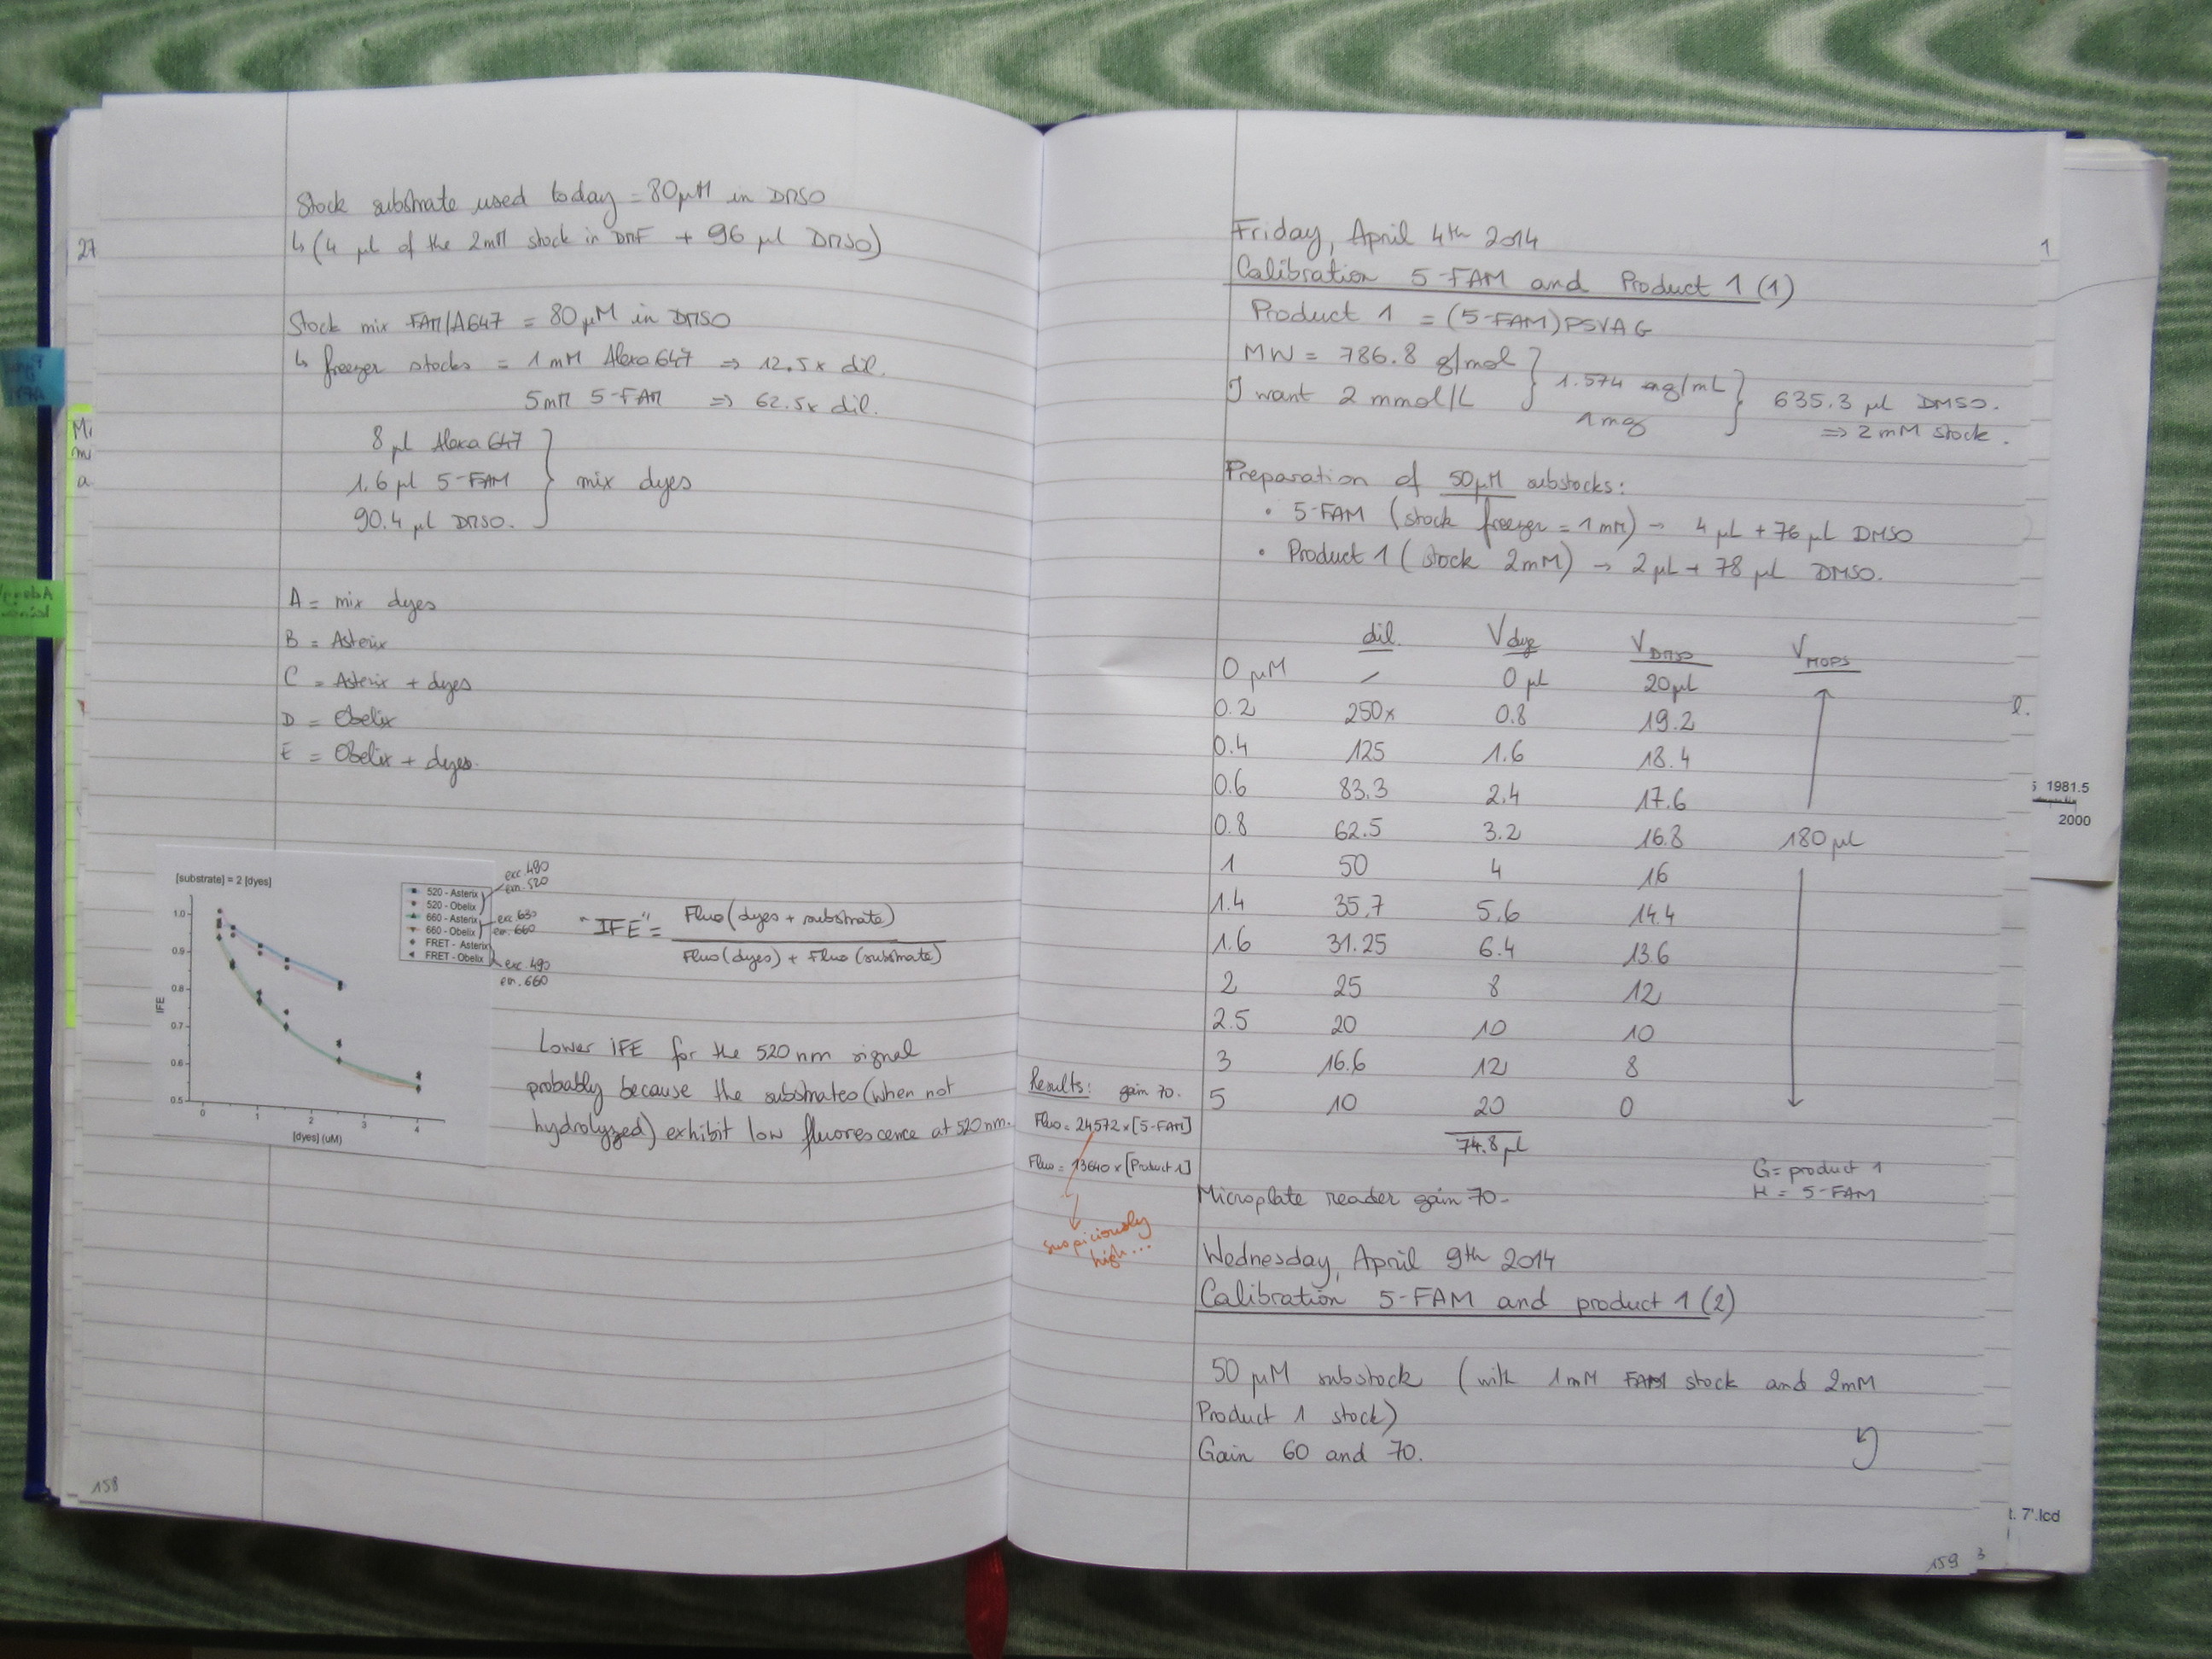 27
Stock substrate used today = 80µM in DMSO
↳ (4 µl of the 2mM stock in DMF + 96 µl DMSO)
Stock mix FAM/A647 = 80µM in DMSO
↳ freezer stocks = 1 mM Alexa 647 ⇒ 12.5x dil.
5mM 5-FAM ⇒ 62.5x dil.
8 µl Alexa 647
1.6 µl 5-FAM } mix dyes
90.4 µl DMSO.
A = mix dyes
B = Asterix
C = Asterix + dyes
D = Obelix
E = Obelix + dyes.
[substrate] = 2 [dyes]
520 - Asterix
520 - Obelix
660 - Asterix
660 - Obelix
FRET - Asterix
FRET - Obelix
exc. 480
em. 520
exc. 630
em. 660
exc. 490
em. 660
1.0
0.9
0.8
0.7
0.6
0.5
IFE
0 1 2 3 4
[dyes] (uM)
"IFE" = Fluo (dyes + substrate)
Fluo (dyes) + Fluo (substrate)
Lower IFE for the 520 nm signal
probably because the substrates (when not
hydrolyzed) exhibit low fluorescence at 520 nm.
158
Friday, April 4th 2014
Calibration 5-FAM and Product 1 (1)
Product 1 = (5-FAM)PSVAG
MW = 786.8 g/mol } 1.574 mg/mL } 635.3 µl DMSO.
I want 2 mmol/L 1 mg ⇒ 2 mM stock.
Preparation of 50µM substocks:
• 5-FAM (stock freezer = 1 mM) → 4 µL + 76 µL DMSO
• Product 1 (stock 2mM) → 2µL + 78 µL DMSO.
dil. Vdye VDMSO VMOPS
0 µM / 0 µl 20µl
0.2 250x 0.8 19.2
0.4 125 1.6 18.4
0.6 83.3 2.4 17.6
0.8 62.5 3.2 16.8 180 µL
1 50 4 16
1.4 35.7 5.6 14.4
1.6 31.25 6.4 13.6
2 25 8 12
2.5 20 10 10
3 16.6 12 8
5 10 20 0
74.8 µl
Results: gain 70.
Fluo = 24572 x [5-FAM]
Fluo = 13640 x [Product 1]
suspiciously
high...
G = product 1
H = 5-FAM
Microplate reader gain 70-
Wednesday, April 9th 2014
Calibration 5-FAM and product 1 (2)
50 µM substock (with 1mM FAM stock and 2mM
Product 1 stock)
Gain 60 and 70.
159
3
1
1981.5
2000
t. 7'.lcd